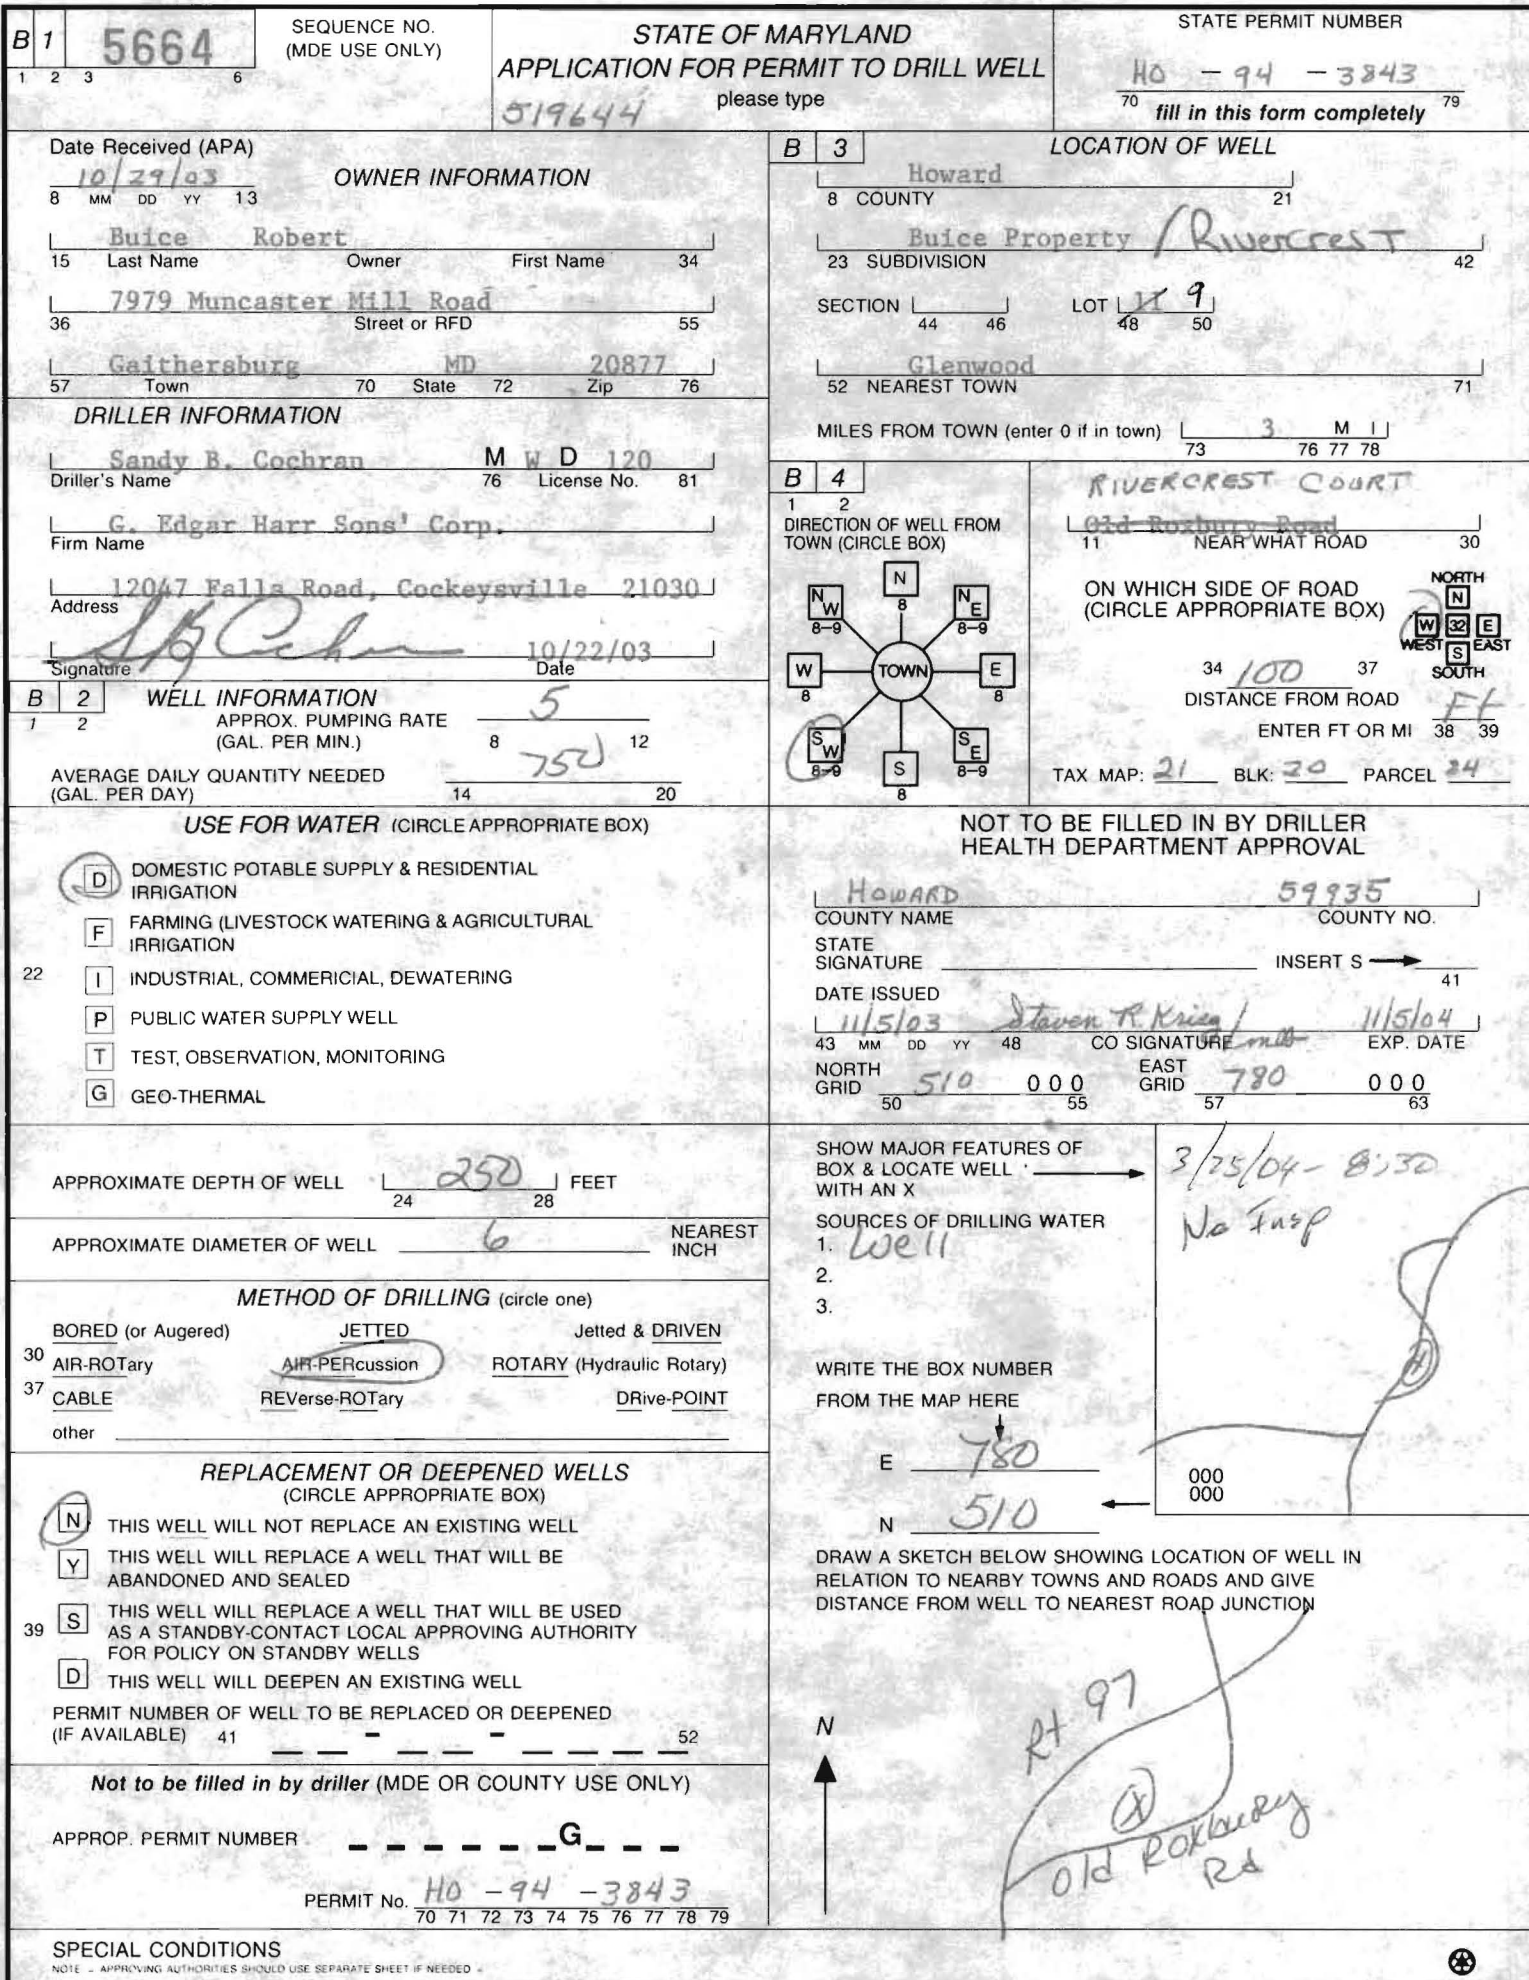 B 1 5664
1 2 3 6
SEQUENCE NO.
(MDE USE ONLY)
STATE OF MARYLAND
APPLICATION FOR PERMIT TO DRILL WELL
please type
519644
STATE PERMIT NUMBER
HO - 94 - 3843
70 fill in this form completely 79
Date Received (APA)
10/29/03
8 MM DD YY 13
OWNER INFORMATION
Buice Robert
15 Last Name Owner First Name 34
7979 Muncaster Mill Road
36 Street or RFD 55
Gaithersburg MD 20877
57 Town 70 State 72 Zip 76
DRILLER INFORMATION
Sandy B. Cochran M W D 120
Driller's Name 76 License No. 81
G. Edgar Harr Sons' Corp.
Firm Name
12047 Falls Road, Cockeysville 21030
Address
10/22/03
Signature Date
B 2 WELL INFORMATION
1 2
APPROX. PUMPING RATE 5
(GAL. PER MIN.) 8 12
AVERAGE DAILY QUANTITY NEEDED 750
(GAL. PER DAY) 14 20
USE FOR WATER (CIRCLE APPROPRIATE BOX)
D DOMESTIC POTABLE SUPPLY & RESIDENTIAL
IRRIGATION
F FARMING (LIVESTOCK WATERING & AGRICULTURAL
IRRIGATION
22 I INDUSTRIAL, COMMERICIAL, DEWATERING
P PUBLIC WATER SUPPLY WELL
T TEST, OBSERVATION, MONITORING
G GEO-THERMAL
APPROXIMATE DEPTH OF WELL 250 FEET
24 28
APPROXIMATE DIAMETER OF WELL 6 NEAREST
INCH
METHOD OF DRILLING (circle one)
BORED (or Augered) JETTED Jetted & DRIVEN
30 AIR-ROTary AIR-PERcussion ROTARY (Hydraulic Rotary)
37 CABLE REVerse-ROTary DRive-POINT
other
REPLACEMENT OR DEEPENED WELLS
(CIRCLE APPROPRIATE BOX)
N THIS WELL WILL NOT REPLACE AN EXISTING WELL
Y THIS WELL WILL REPLACE A WELL THAT WILL BE
ABANDONED AND SEALED
39 S THIS WELL WILL REPLACE A WELL THAT WILL BE USED
AS A STANDBY-CONTACT LOCAL APPROVING AUTHORITY
FOR POLICY ON STANDBY WELLS
D THIS WELL WILL DEEPEN AN EXISTING WELL
PERMIT NUMBER OF WELL TO BE REPLACED OR DEEPENED
(IF AVAILABLE) 41 - - 52
Not to be filled in by driller (MDE OR COUNTY USE ONLY)
APPROP. PERMIT NUMBER G
PERMIT No. HO - 94 - 3843
70 71 72 73 74 75 76 77 78 79
SPECIAL CONDITIONS
NOTE - APPROVING AUTHORITIES SHOULD USE SEPARATE SHEET IF NEEDED -
B 3 LOCATION OF WELL
Howard
8 COUNTY 21
Buice Property / Rivercrest
23 SUBDIVISION 42
SECTION LOT 11 9
44 46 48 50
Glenwood
52 NEAREST TOWN 71
MILES FROM TOWN (enter 0 if in town) 3 M I
73 76 77 78
B 4
1 2
DIRECTION OF WELL FROM
TOWN (CIRCLE BOX)
N
8
NW
8-9
NE
8-9
W
8
TOWN
E
8
SW
8-9
S
8
SE
8-9
RIVERCREST COURT
Old Roxbury Road
11 NEAR WHAT ROAD 30
ON WHICH SIDE OF ROAD
(CIRCLE APPROPRIATE BOX)
NORTH
N
W 32 E
WEST S EAST
SOUTH
34 100 37
DISTANCE FROM ROAD
ENTER FT OR MI Ft
38 39
TAX MAP: 21 BLK: 20 PARCEL 24
NOT TO BE FILLED IN BY DRILLER
HEALTH DEPARTMENT APPROVAL
HOWARD 59935
COUNTY NAME COUNTY NO.
STATE
SIGNATURE INSERT S
41
DATE ISSUED
11/5/03 Steven R. Krieg / 11/5/04
43 MM DD YY 48 CO SIGNATURE EXP. DATE
NORTH
GRID 510 000
50 55
EAST
GRID 780 000
57 63
SHOW MAJOR FEATURES OF
BOX & LOCATE WELL
WITH AN X
SOURCES OF DRILLING WATER
1. Well
2.
3.
WRITE THE BOX NUMBER
FROM THE MAP HERE
E 780
N 510
3/25/04 - 8:30
No Insp
000
000
DRAW A SKETCH BELOW SHOWING LOCATION OF WELL IN
RELATION TO NEARBY TOWNS AND ROADS AND GIVE
DISTANCE FROM WELL TO NEAREST ROAD JUNCTION
N
Rt 97
X
Old Roxbury
Rd